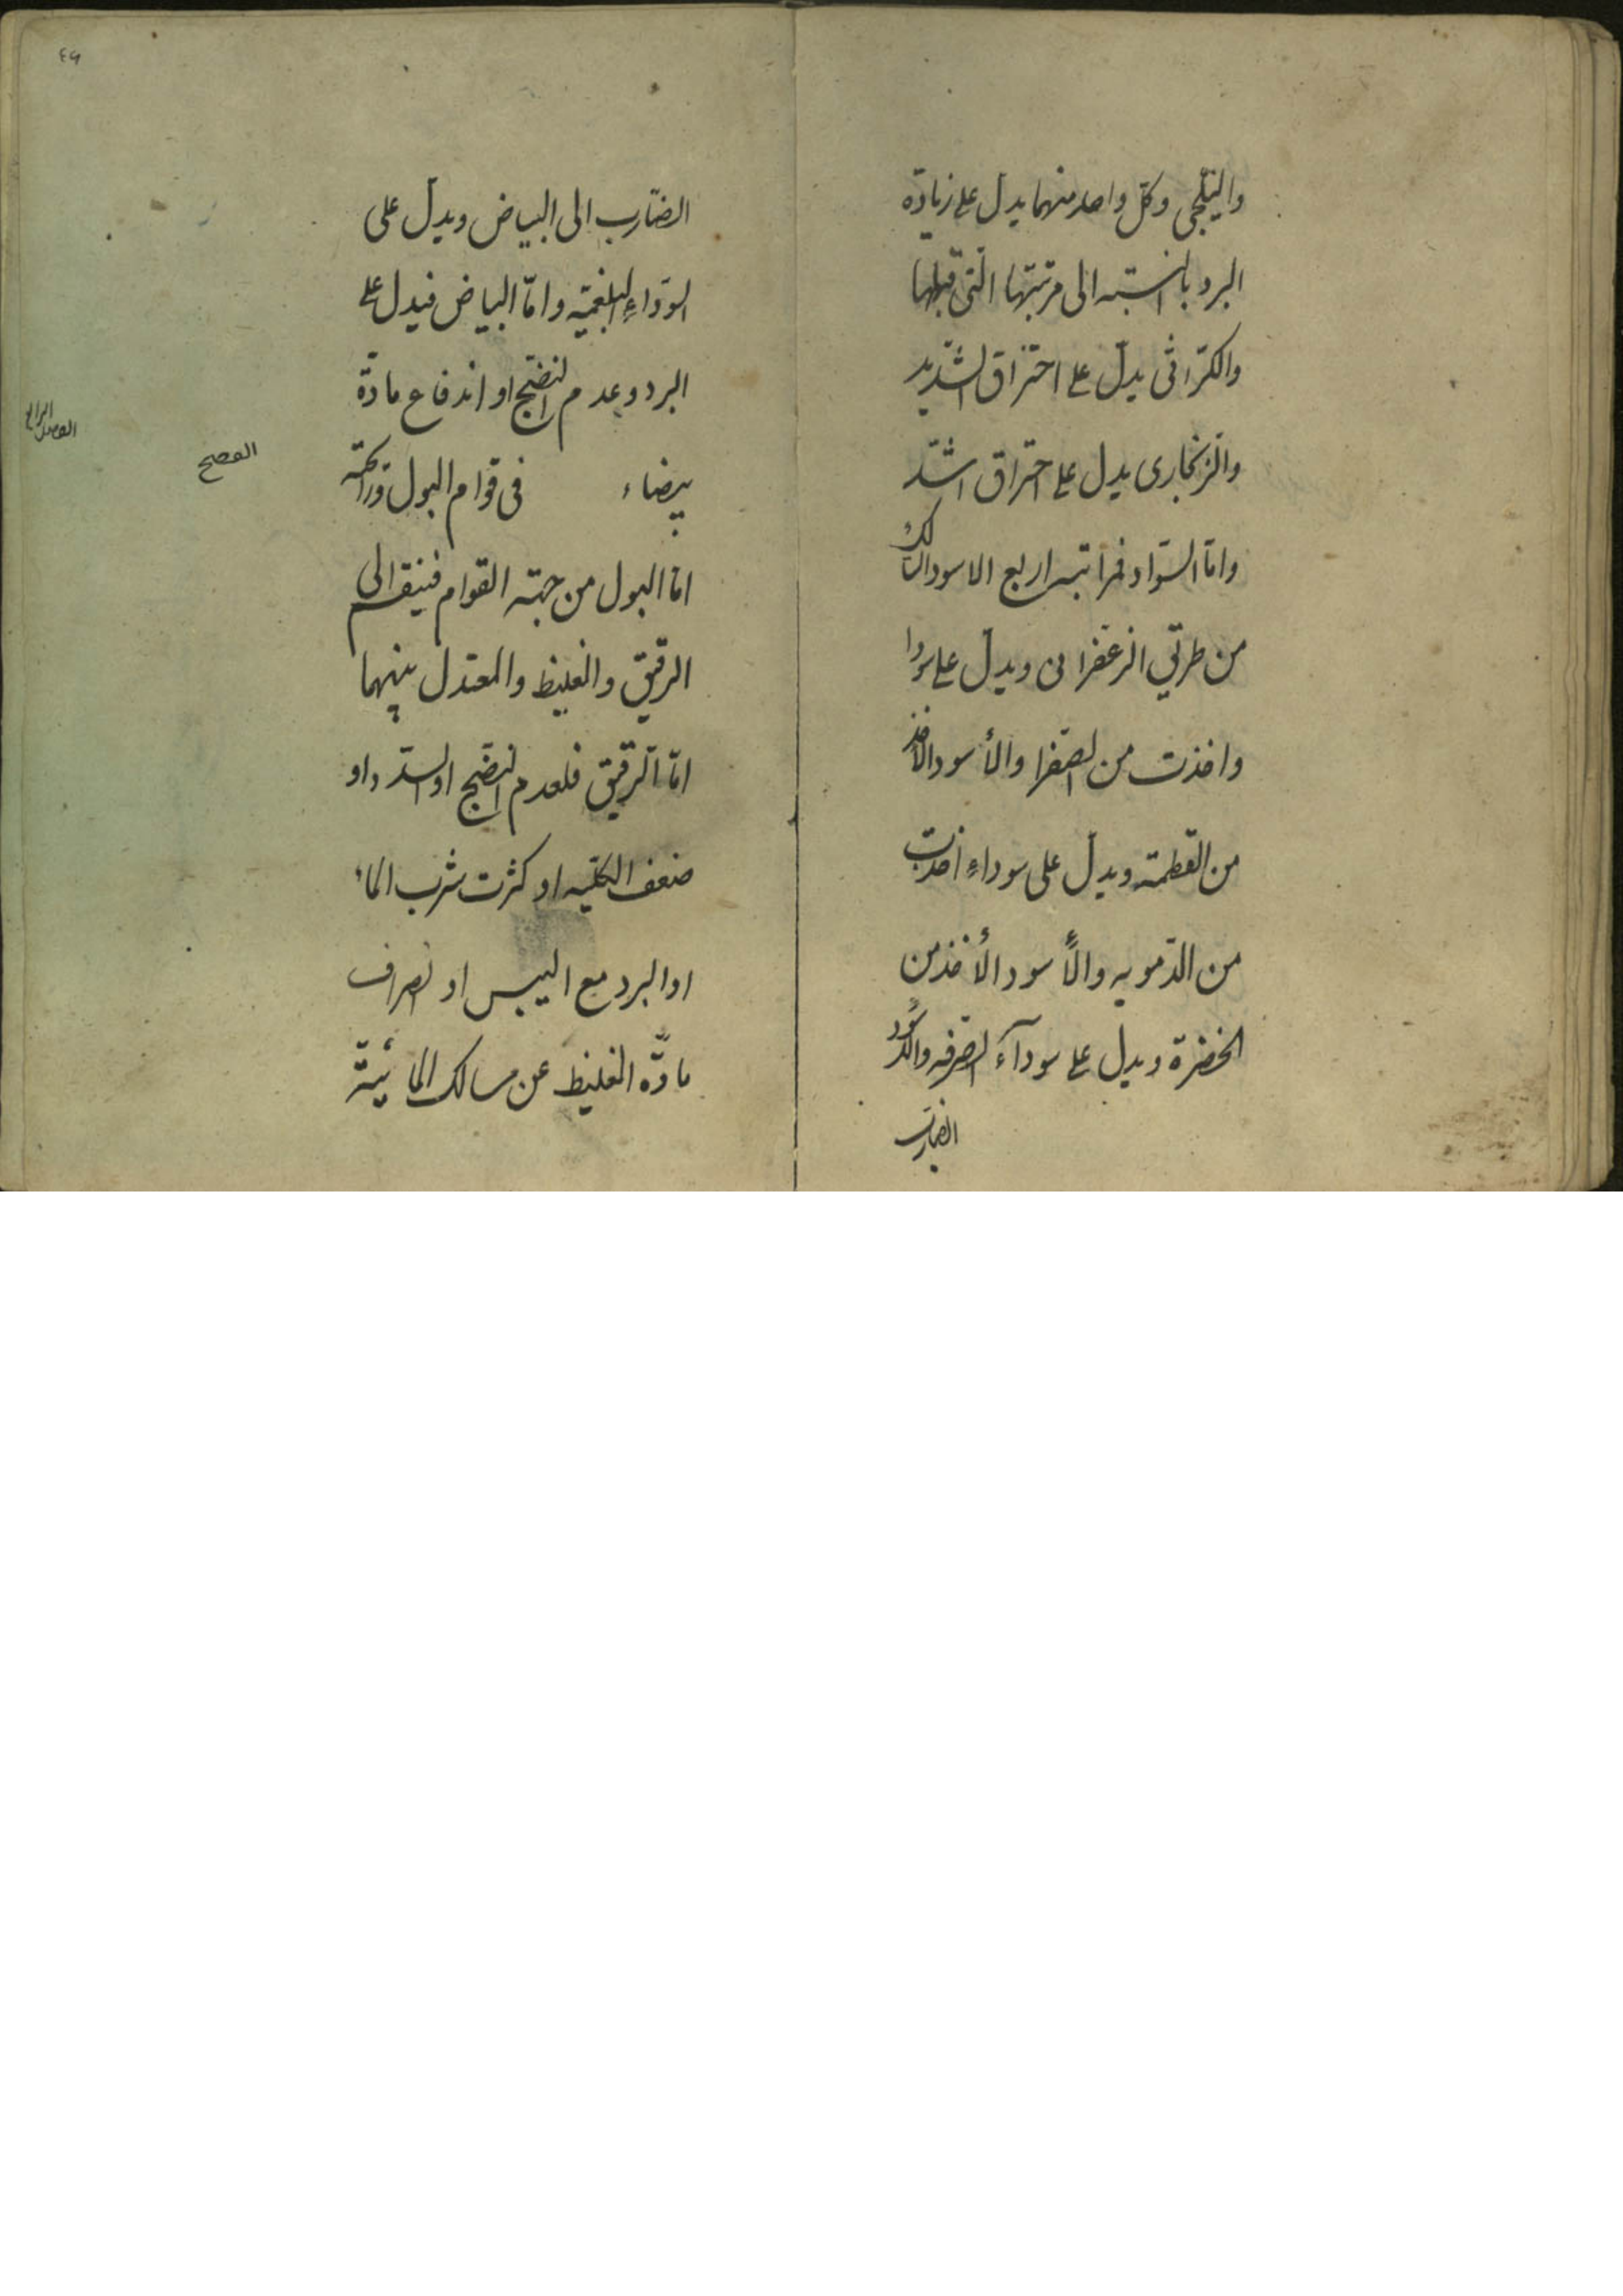 والنيلجى وكلّ واحد منهما يدلّ على زيادة
البرد بالنسبه الى مرتبتها الّتى قبلها
والكرّاثى يدلّ على احتراق الشديد
والزّنجارى يدل على احتراق اشدّ
وامّا السّواد فمراتبه اربع الاسود السالك
من طريق الزعفرانى ويدلّ على سودا
واخذت من الصّفرا والأسود الاخذ
من القطمة ويدلّ على سوداءٍ اخذت
من الدّمويه والأسود الأخذ من
الخضرة ويدل على سوداء الصّرفه والاسود
الضّارب
٤٦
الضّارب الى البياض ويدلّ على
السّوداءِ البلغميّه وامّا البياض فيدل على
البرد وعدم النضج او اندفاع مادّة
بيضاء في قوام البول ورائحته
امّا البول من جهته القوام فينقسم الى
الرقيق والغليظ والمعتدل بينهما
امّا الرّقيق فلعدم النّضج او السّدد او
ضعف الكليه او كثرت شرب الماء
او البرد مع اليبس او انصراف
مادّه الغليظ عن مسالك المائيّة
الفصل الرابع